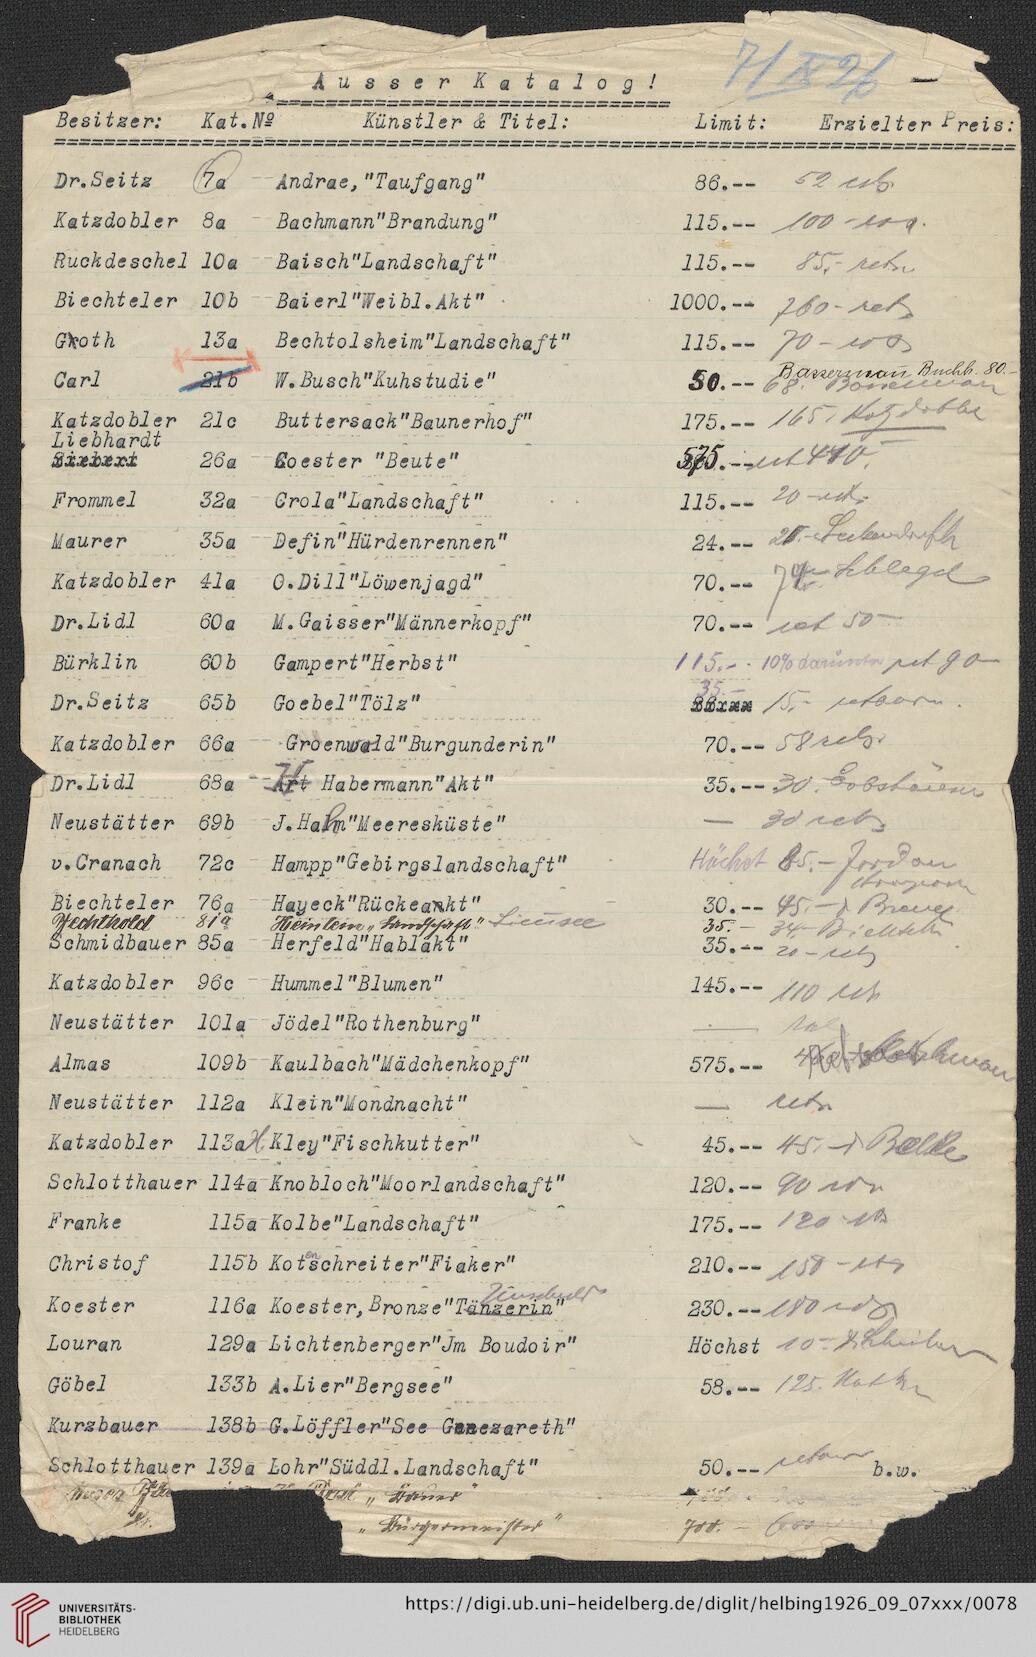 7/IX 26
Ausser Katalog!
Besitzer: Kat.Nº Künstler & Titel: Limit: Erzielter Preis:
Dr.Seitz 7a Andrae,"Taufgang" 86.-- 52 retr.
Katzdobler 8a Bachmann"Brandung" 115.-- 100 -
Ruckdeschel 10a Baisch"Landschaft" 115.-- 85.- retr.
Biechteler 10b Baierl"Weibl.Akt" 1000.-- 760 - retr.
Groth 13a Bechtolsheim"Landschaft" 115.-- 70 -
Bassermann Buchh. 80.-
Carl 21b W.Busch"Kuhstudie" 50.-- 68. Bassermann
Katzdobler 21c Buttersack"Baunerhof" 175.-- 165. Katzdobler
Liebhardt
Siebert 26a Coester "Beute" 575.-- ret 480.-
Frommel 32a Crola"Landschaft" 115.-- 20 - retr.
Maurer 35a Defin"Hürdenrennen" 24.--
Katzdobler 41a O.Dill"Löwenjagd" 70.-- Schlegel
Dr.Lidl 60a M.Gaisser"Männerkopf" 70.-- ret 50 -
Bürklin 60b Gampert"Herbst" 115.- 10% darunter ret 90 -
35.-
Dr.Seitz 65b Goebel"Tölz" 15.- retour.
Katzdobler 66a Groenwald"Burgunderin" 70.-- 58 retr.
Dr.Lidl 68a Habermann"Akt" 35.-- 30.
Neustätter 69b J.Hahn"Meeresküste" — 30 retr.
v.Cranach 72c Hampp"Gebirgslandschaft" Höchst 85.- Jordan
Biechteler 76a Hayeck"Rückeankt" 30.-- 45.-
81a Heinlein „Landschaft" 35.- 34.-
Schmidbauer 85a Herfeld"Hablakt" 35.-- 20 - retr.
Katzdobler 96c Hummel"Blumen" 145.-- 110 retr.
Neustätter 101a Jödel"Rothenburg" —
Almas 109b Kaulbach"Mädchenkopf" 575.--
Neustätter 112a Klein"Mondnacht" — retr.
Katzdobler 113a H. Kley"Fischkutter" 45.-- 45.-
Schlotthauer 114a Knobloch"Moorlandschaft" 120.-- 90
Franke 115a Kolbe"Landschaft" 175.-- 120 -
Christof 115b Kotenschreiter"Fiaker" 210.-- 150 - retr.
Koester 116a Koester,Bronze"Tänzerin" 230.-- 180
Louran 129a Lichtenberger"Jm Boudoir" Höchst 10 -
Göbel 133b A.Lier"Bergsee" 58.-- 125.
Kurzbauer 138b G.Löffler"See Genezareth"
Schlotthauer 139a Lohr"Süddl.Landschaft" 50.-- retour b.w.
„Bauer"
„Bürgermeister" 700.- 600
UNIVERSITÄTS-
BIBLIOTHEK
HEIDELBERG
https://digi.ub.uni-heidelberg.de/diglit/helbing1926_09_07xxx/0078